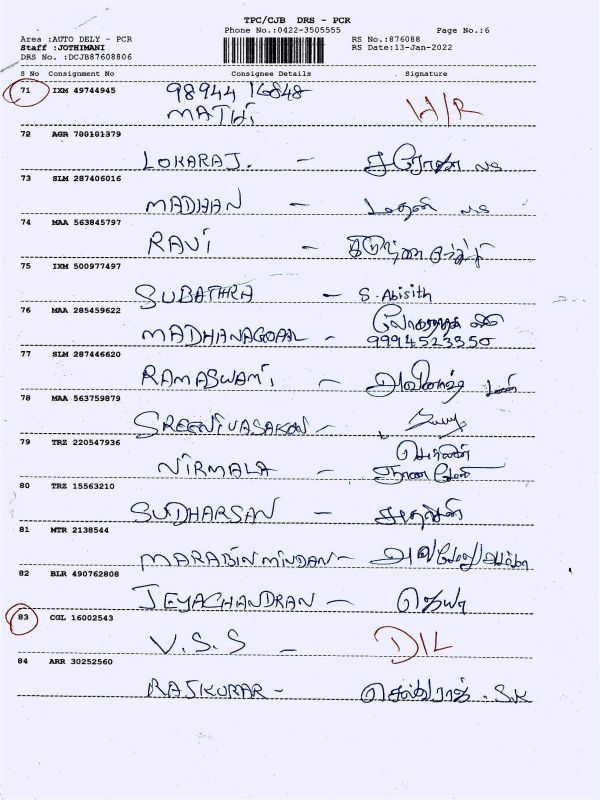 TPC/CJB DRS - PCR
Phone No.:0422-3505555 Page No.:6
Area :AUTO DELY - PCR RS No.:876088
Staff :JOTHIMANI RS Date:13-Jan-2022
DRS No. :DCJB87608806
S No Consignment No Consignee Details Signature
71 IXM 49744945 98944 16848
MATHi H/R
72 AGR 700101379
LOKARAJ. -
73 SLM 287406016
MADHAN - மதன்
74 MAA 563845797
RAVi -
75 IXM 500977497
SUBATHRA - S. Abisith
76 MAA 285459622
MADHANAGOPAL - 9994523350
77 SLM 287446620
RAMASWAMi -
78 MAA 563759879
SREENIVASAKAN -
79 TRZ 220547936
NiRMALA -
80 TRZ 15563210
SUDHARSAN -
81 MTR 2138544
MARABiNMiNDAN -
82 BLR 490762808
JEYACHANDRAN - ஜெயா
83 CGL 16002543
V.S.S - D/L
84 ARR 30252560
RAJKUMAR - செல்வராஜ் . S.K